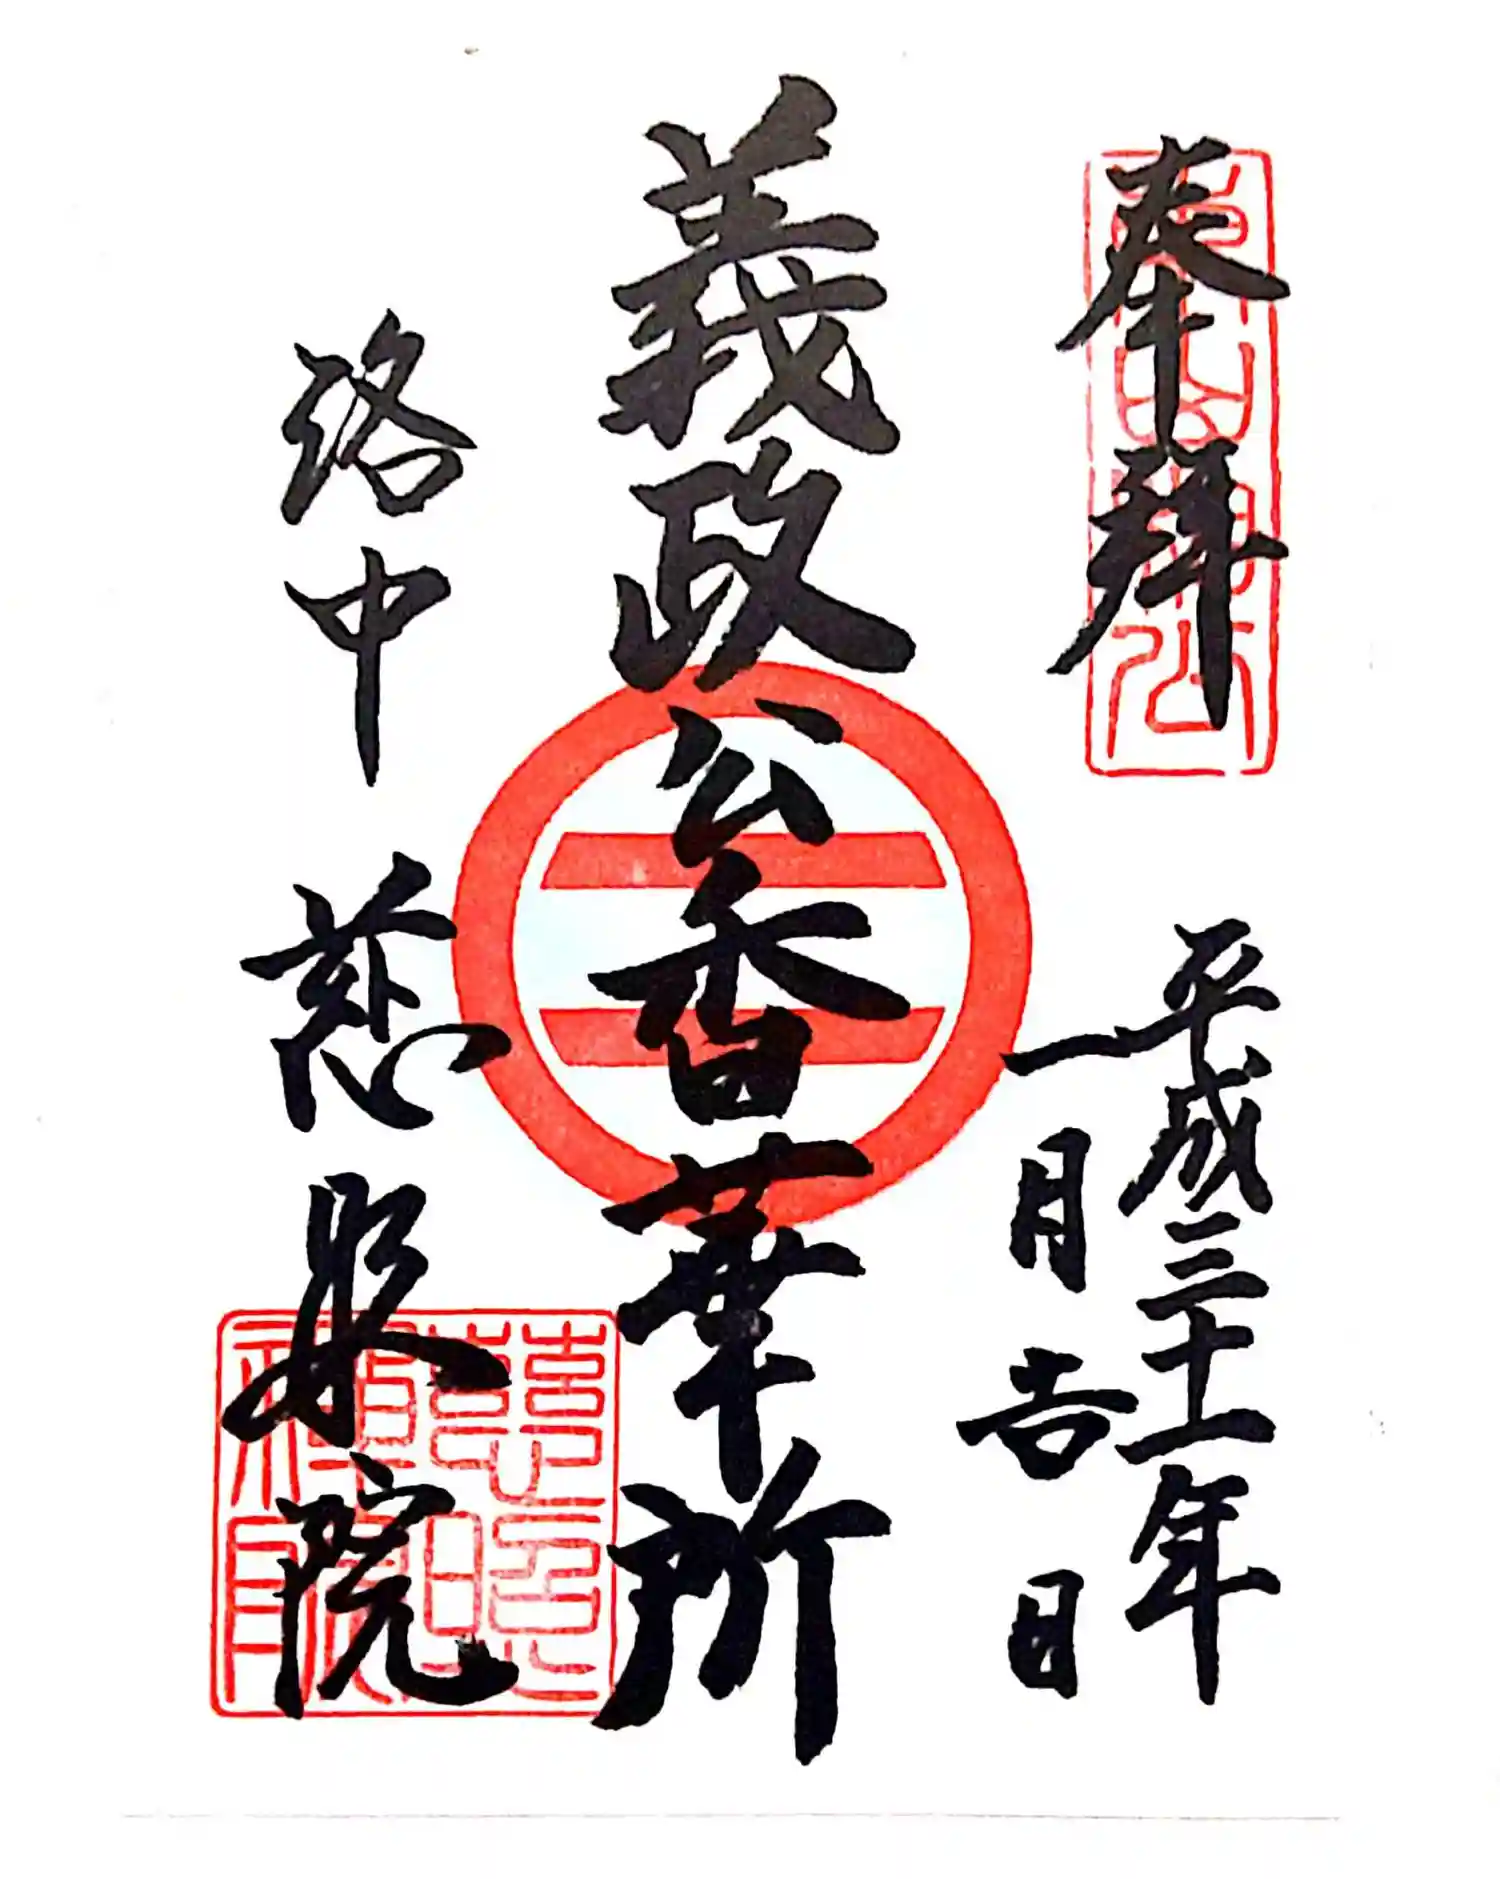 奉拝
平成三十一年
一月吉日
義政公香華所
洛中 慈照院
慈照禪院